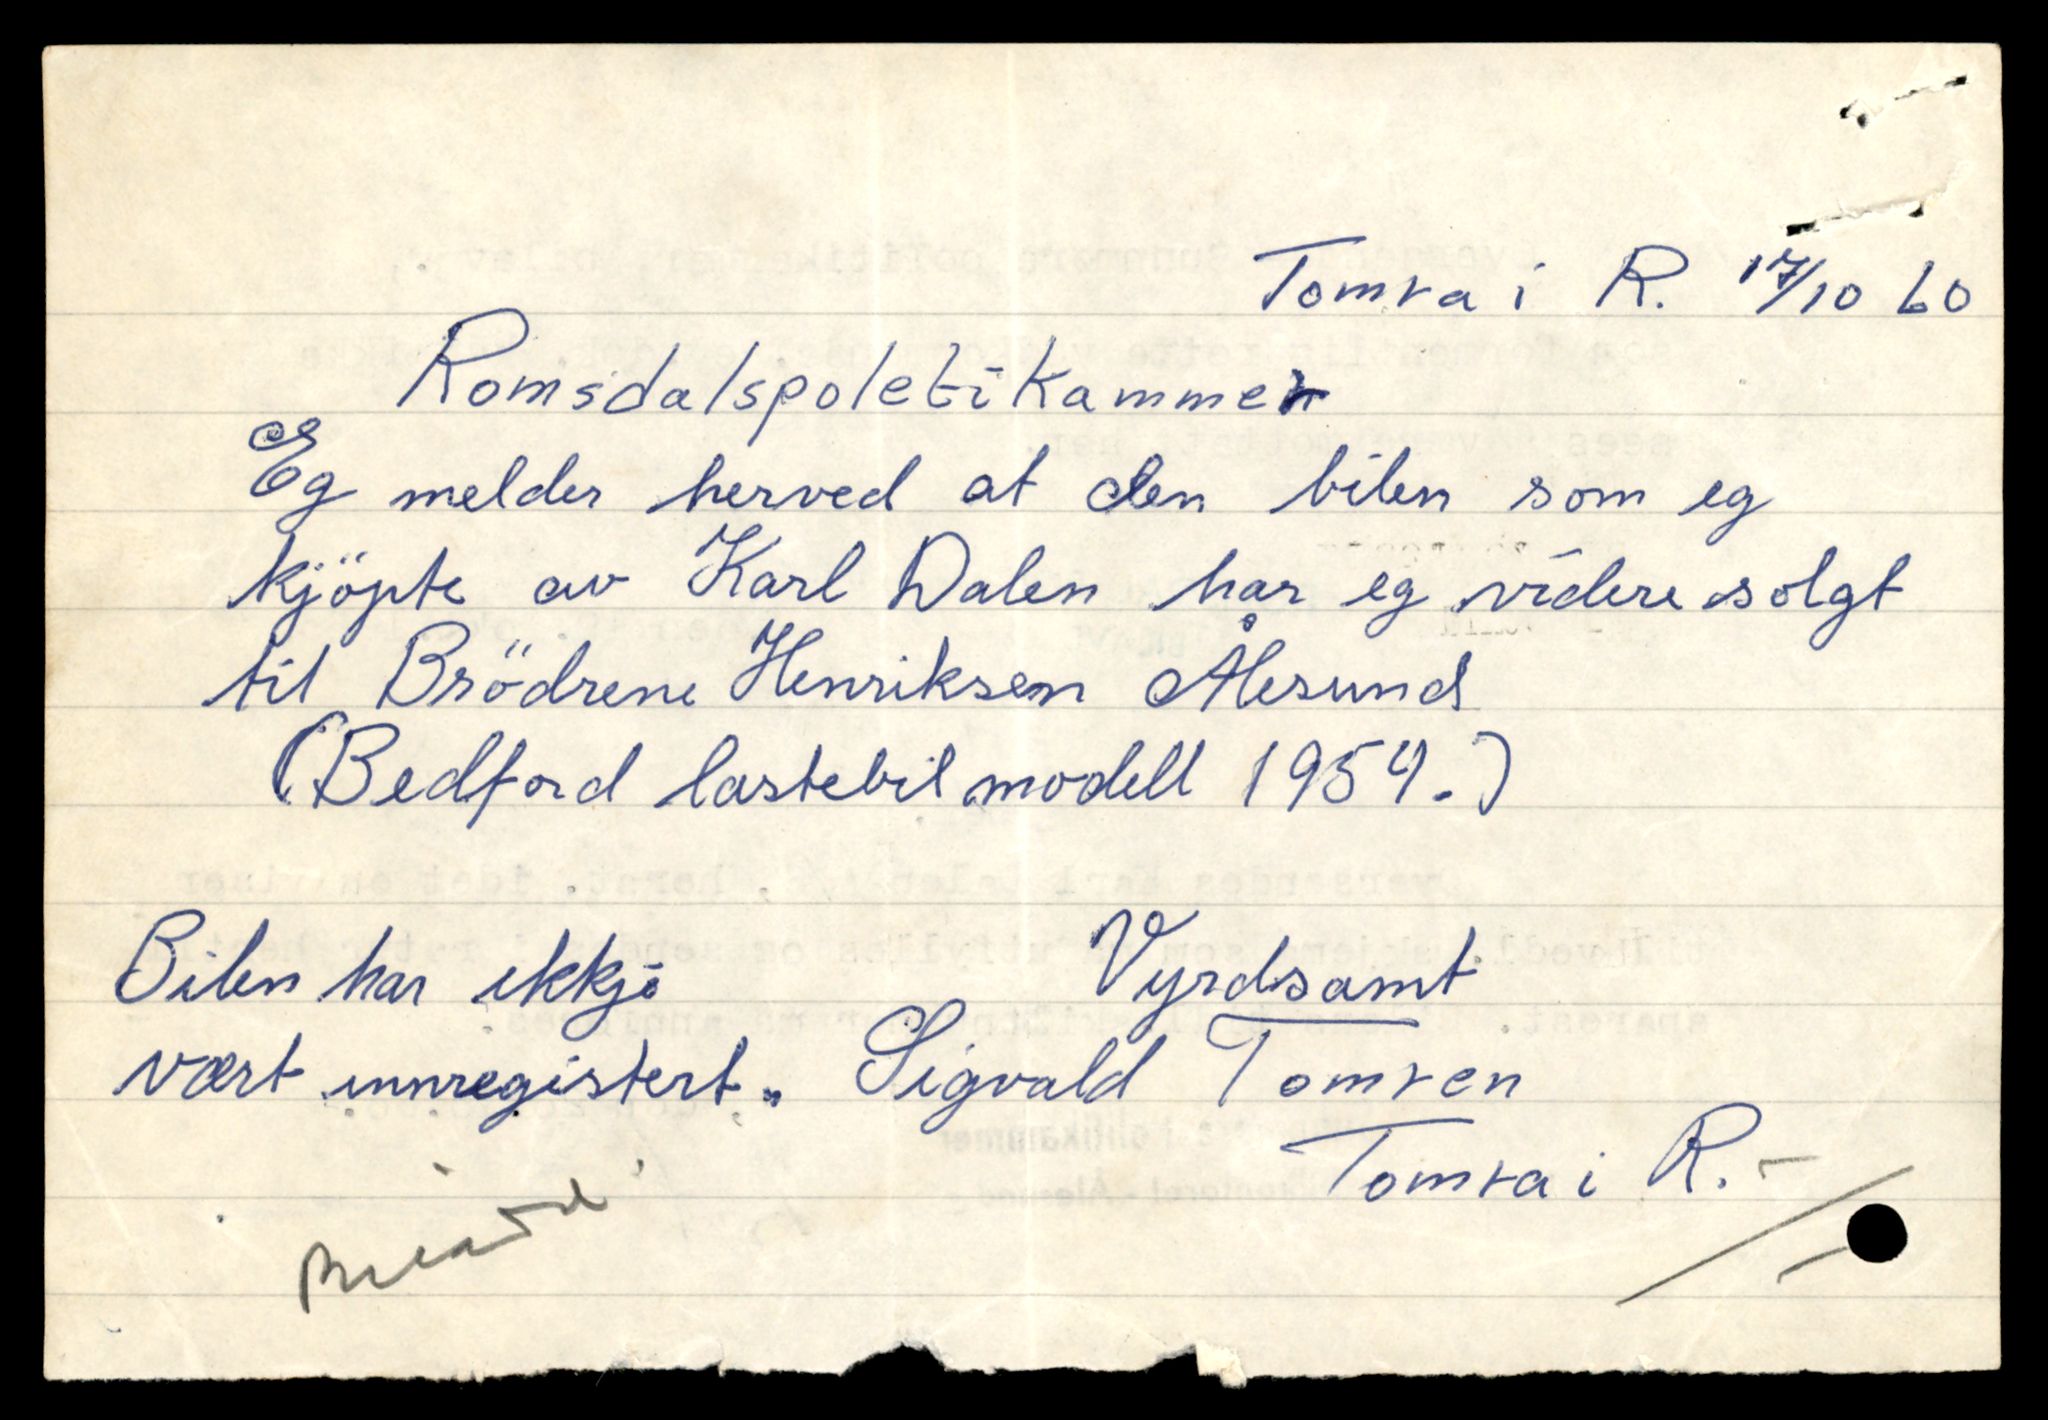 Tomra i R. 17/10 60
Romsdalspoletikammer
Eg melder herved at den bilen som eg
kjöpte av Karl Dalen har eg videre solgt
til Brödrene Henriksen Ålesund
(Bedford lastebil modell 1954.)
Bilen har ikkje
vært innregistert.
Vyrdsamt
Sigvald Tomren
Tomra i R.